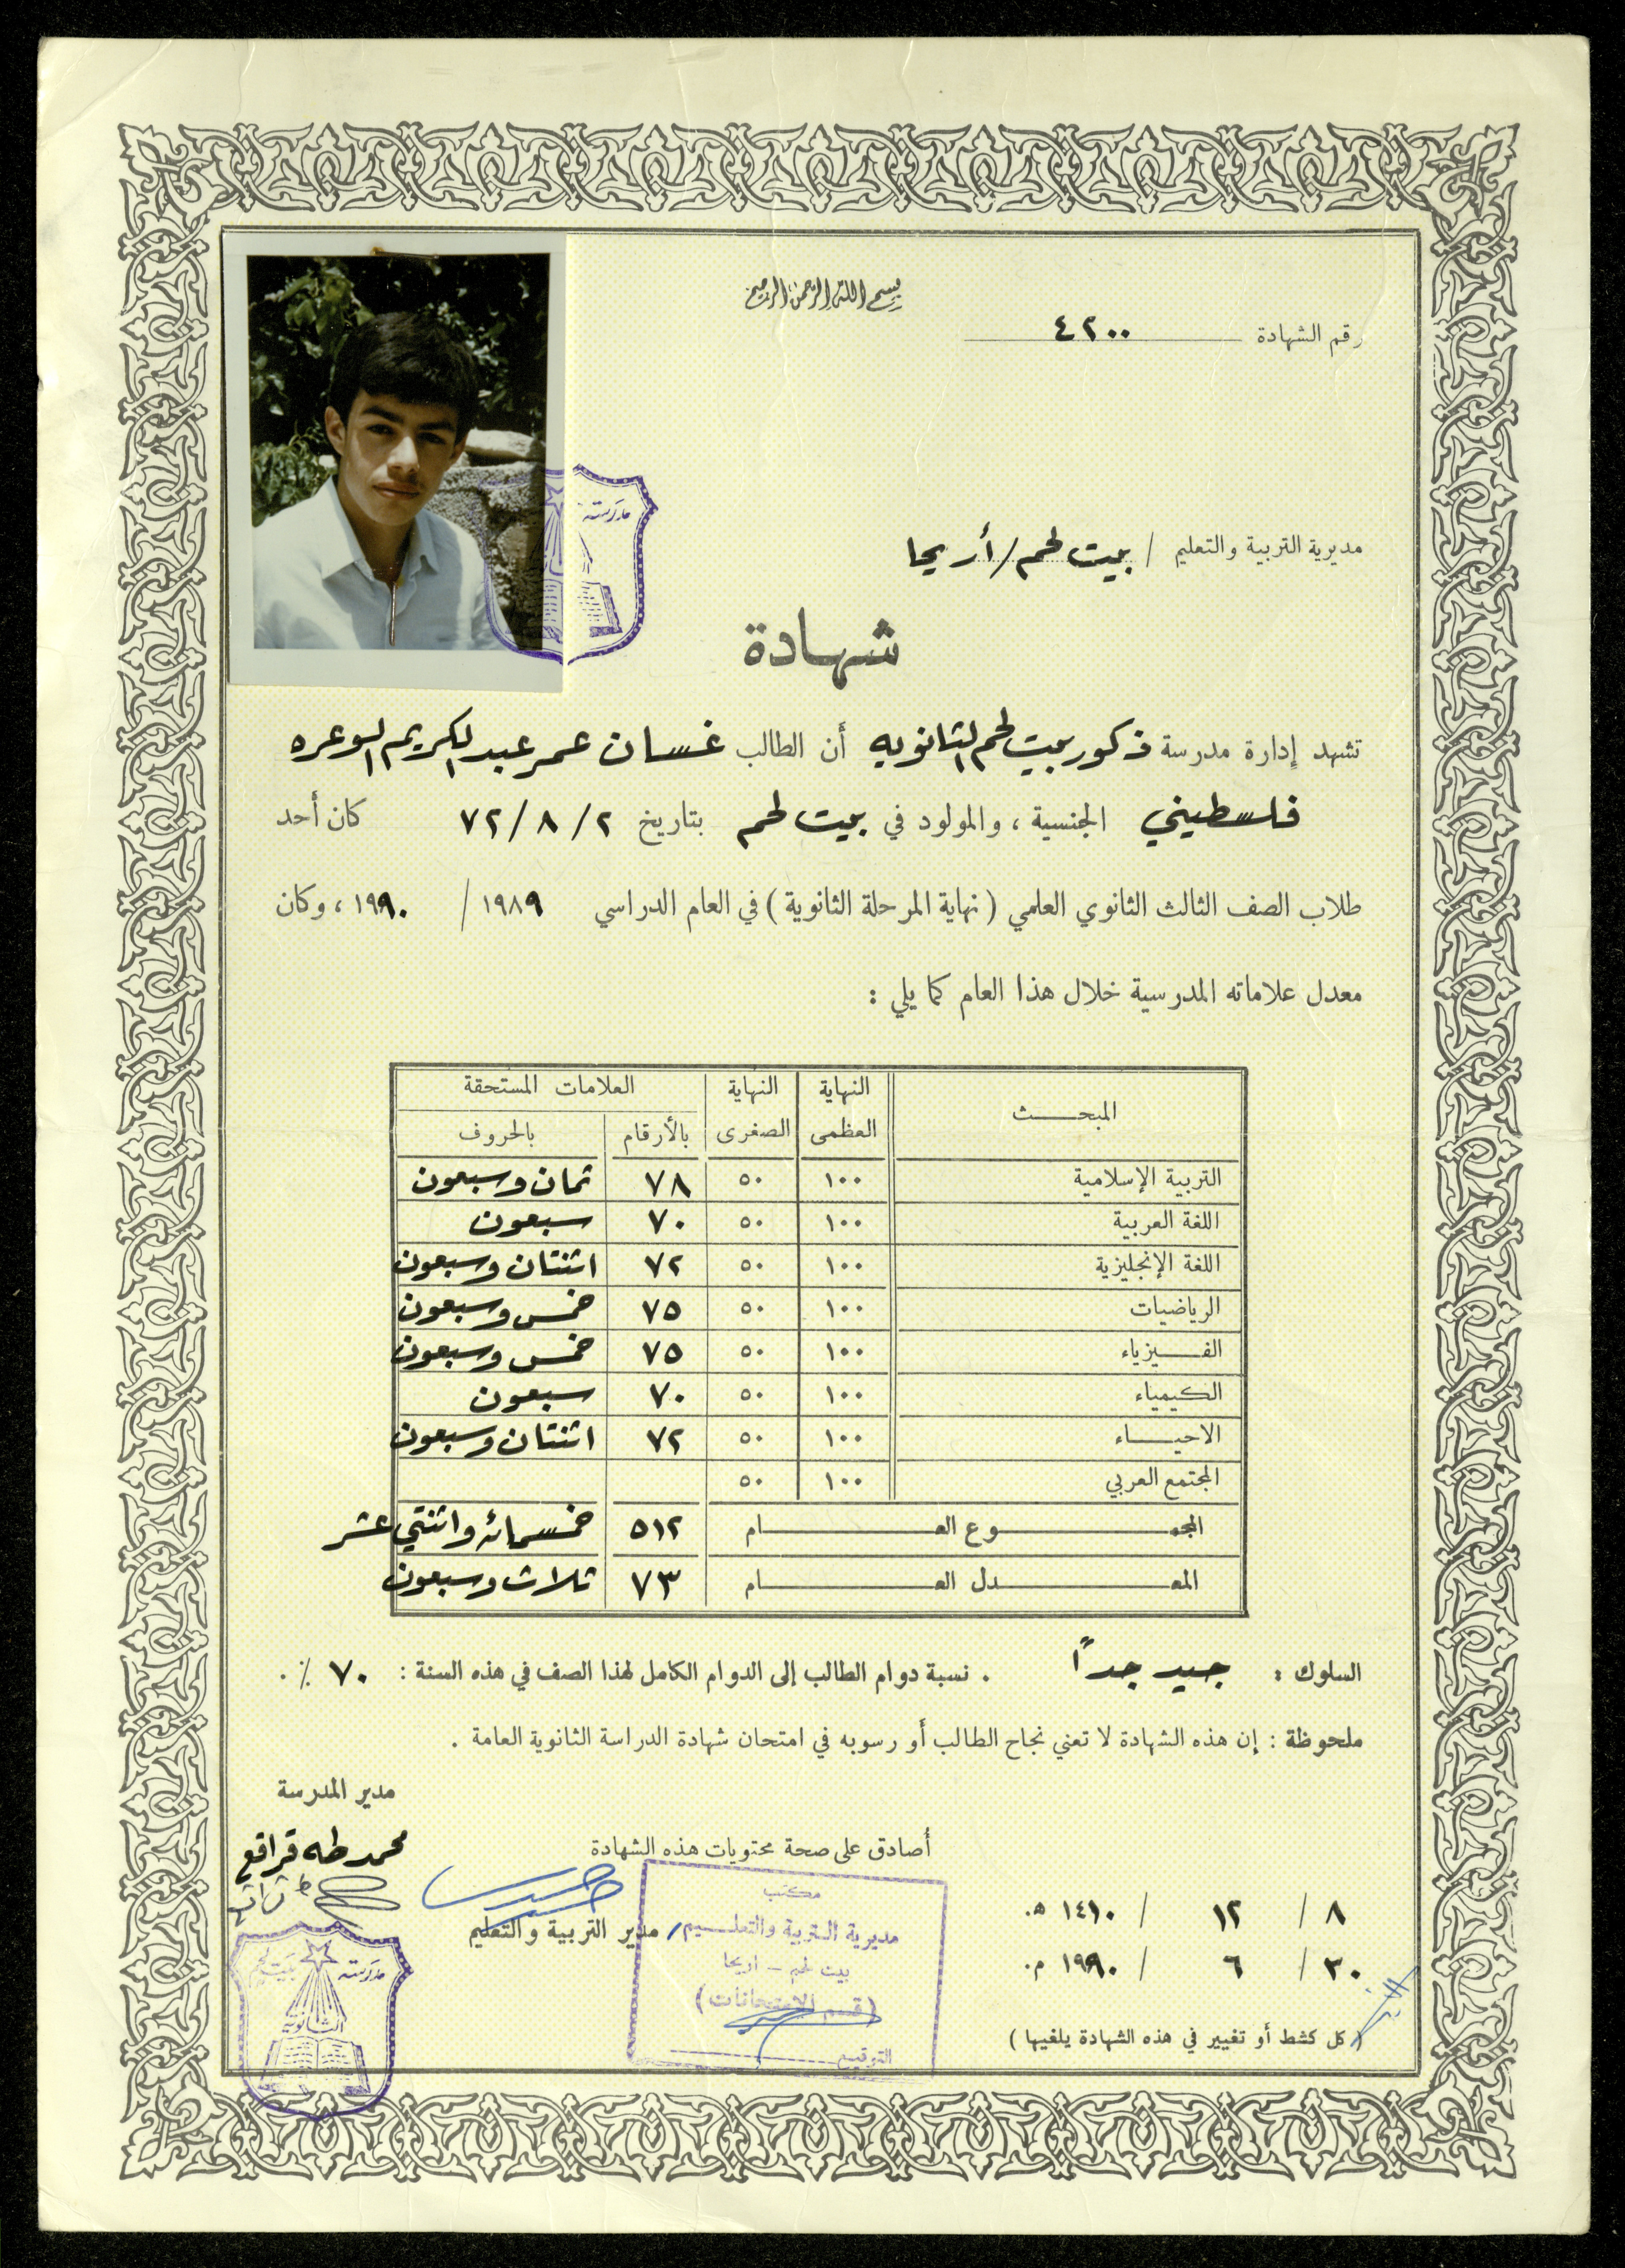 بسم الله الرحمن الرحيم
رقم الشهادة ٤٢٠٠
مديرية التربية والتعليم / بيت لحم/أريحا
مدرسة
شهادة
تشهد إدارة مدرسة ذكور بيت لحم الثانويه أن الطالب غسان عمر عبد الكريم الوعره
فلسطيني الجنسية ، والمولود في بيت لحم بتاريخ ٢ / ٨ / ٧٢ كان أحد
طلاب الصف الثالث الثانوي العلمي ( نهاية المرحلة الثانوية ) في العام الدراسي ١٩٨٩ / ١٩٩٠ ، وكان
معدل علاماته المدرسية خلال هذا العام كما يلي :
المبحث النهاية العظمى النهاية الصغرى العلامات المستحقة
بالأرقام بالحروف
التربية الإسلامية ١٠٠ ٥٠ ٧٨ ثمان وسبعون
اللغة العربية ١٠٠ ٥٠ ٧٠ سبعون
اللغة الإنجليزية ١٠٠ ٥٠ ٧٢ اثنتان وسبعون
الرياضيات ١٠٠ ٥٠ ٧٥ خمس وسبعون
الفيزياء ١٠٠ ٥٠ ٧٥ خمس وسبعون
الكيمياء ١٠٠ ٥٠ ٧٠ سبعون
الاحياء ١٠٠ ٥٠ ٧٢ اثنتان وسبعون
المجتمع العربي ١٠٠ ٥٠
المجموع العام ٥١٢ خمسمائه واثنتي عشر
المعدل العام ٧٣ ثلاث وسبعون
السلوك : جيد جداً . نسبة دوام الطالب إلى الدوام الكامل لهذا الصف في هذه السنة : ٧٠ ٪ .
ملحوظة : إن هذه الشهادة لا تعني نجاح الطالب أو رسوبه في امتحان شهادة الدراسة الثانوية العامة .
مدير المدرسة
محمد طه قراقع
أصادق على صحة محتويات هذه الشهادة
مدير التربية والتعليم
مكتب
مديرية التربية والتعليم
بيت لحم - اريحا
(قسم الامتحانات)
التوقيع
٨ / ١٢ / ١٤١٠ هـ.
٣٠ / ٦ / ١٩٩٠ م.
( كل كشط أو تغيير في هذه الشهادة يلغيها )
مدرسة بيت لحم
الثانوية